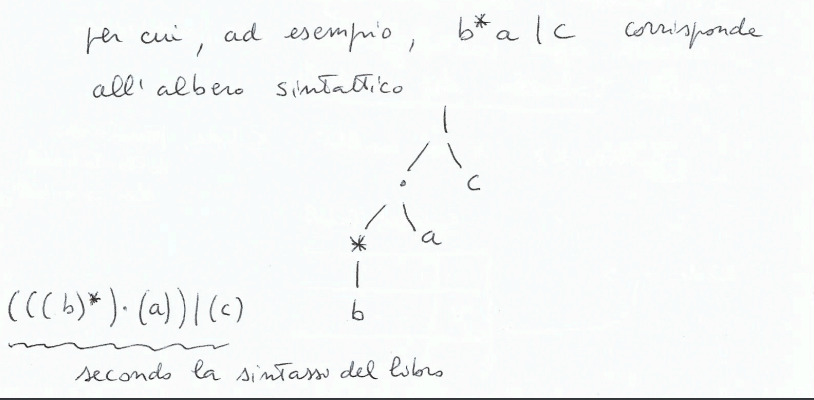 per cui, ad esempio, b*a | c corrisponde
all' albero sintattico
|
· c
* a
|
b
(((b)*)·(a))|(c)
secondo la sintassi del libro